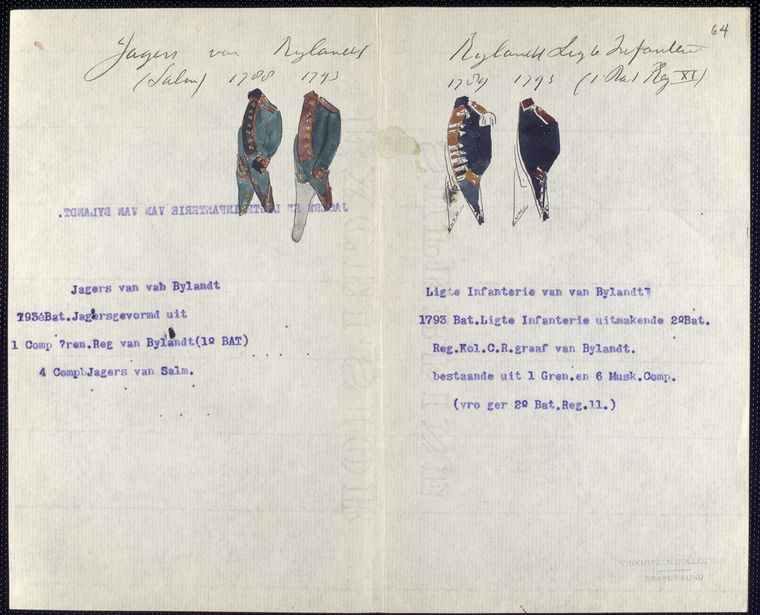 64
Jagers van Bylandt
(Salm) 1788 1793
JAGERS EN LIGTE INFANTERIE VAN VAN BYLANDT.
Jagers van van Bylandt
1793 Bat.Jagersgevormd uit
1 Comp ?ren.Reg van Bylandt(1º BAT)
4 Comp Jagers van Salm.
Bylandt Ligte Infanterie
1789 1793 (1 Bat Reg XI)
Ligte Infanterie van van Bylandt
1793 Bat.Ligte Infanterie uitmakende 2ºBat.
Reg.Kol.C.R.graaf van Bylandt.
bestaande uit 1 Gren.en 6 Musk.Comp.
(vro ger 2º Bat.Reg.11.)
VINKHUIZEN COLLECTION
DRAPER FUND